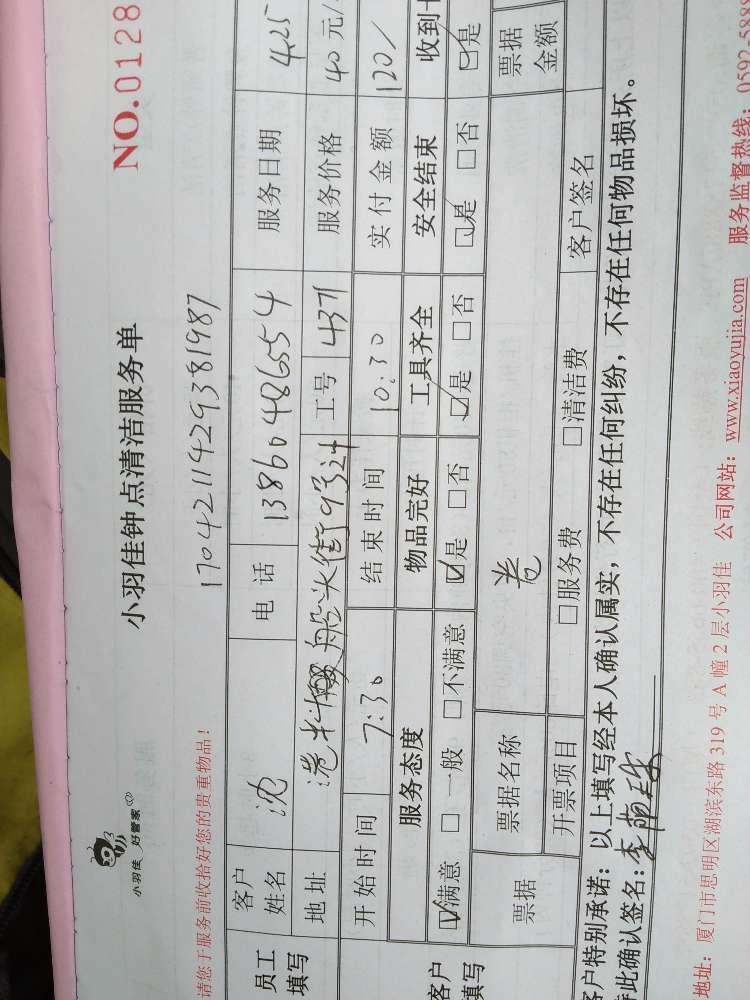 小羽佳 好管家
小羽佳钟点清洁服务单
NO.0128
1704211429381987
请您于服务前收拾好您的贵重物品！
员工填写
客户姓名 沈 电话 13860486554 服务日期 425
地址 港 船头街9号 工号 4371 服务价格 40元/
开始时间 7:30 结束时间 10:30 实付金额 120/
客户填写
服务态度 物品完好 工具齐全 安全结束 收到
☑满意 □一般 □不满意 ☑是 □否 ☑是 □否 ☑是 □否 ☑是
票据 票据名称 卷 票据金额
开票项目 □服务费 □清洁费 客户签名
客户特别承诺：以上填写经本人确认属实，不存在任何纠纷，不存在任何物品损坏。
特此确认签名：李萌珠
地址：厦门市思明区湖滨东路319号A幢2层小羽佳 公司网站：www.xiaoyujia.com 服务监督热线：0592-5888